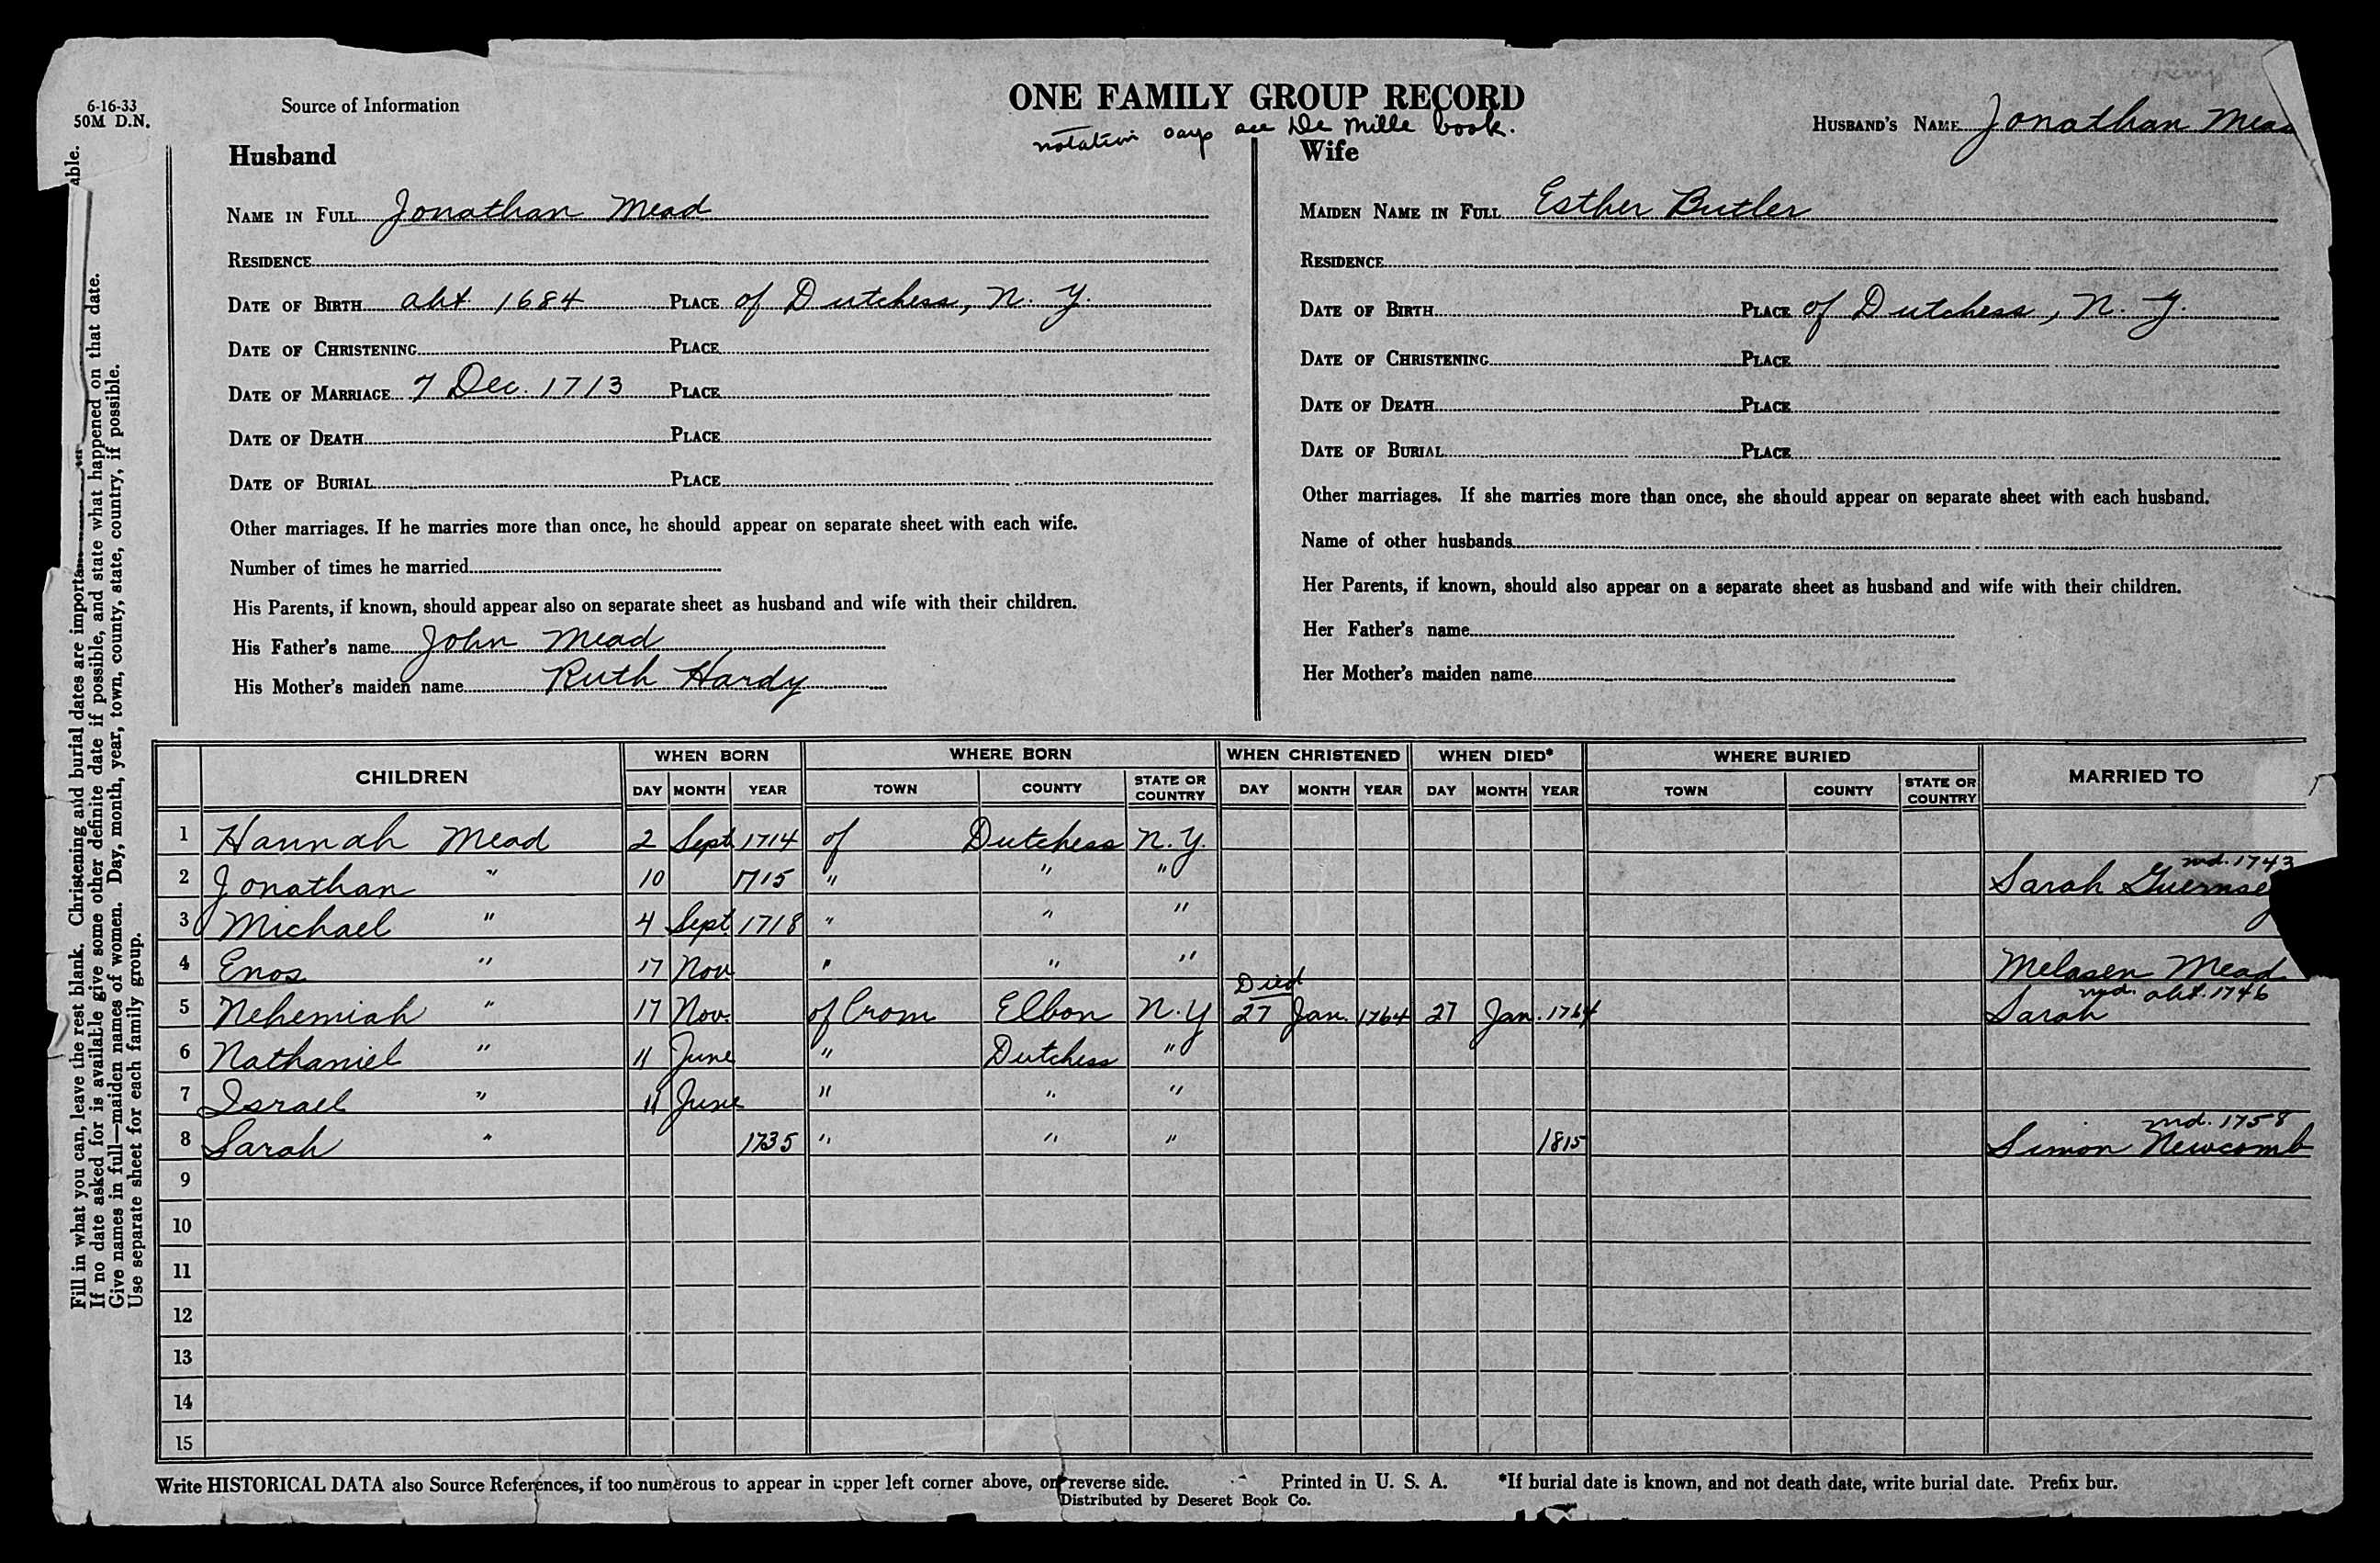 6-16-33
50M D.N.
Source of Information
ONE FAMILY GROUP RECORD
notation says see De Mille book.
HUSBAND'S NAME Jonathan Mead
Husband
NAME IN FULL Jonathan Mead
RESIDENCE
DATE OF BIRTH abt. 1684 PLACE of Dutchess, N. Y.
DATE OF CHRISTENING PLACE
DATE OF MARRIAGE 7 Dec. 1713 PLACE
DATE OF DEATH PLACE
DATE OF BURIAL PLACE
Other marriages. If he marries more than once, he should appear on separate sheet with each wife.
Number of times he married
His Parents, if known, should appear also on separate sheet as husband and wife with their children.
His Father's name John Mead
His Mother's maiden name Ruth Hardy
Wife
MAIDEN NAME IN FULL Esther Butler
RESIDENCE
DATE OF BIRTH PLACE of Dutchess, N. Y.
DATE OF CHRISTENING PLACE
DATE OF DEATH PLACE
DATE OF BURIAL PLACE
Other marriages. If she marries more than once, she should appear on separate sheet with each husband.
Name of other husbands
Her Parents, if known, should also appear on a separate sheet as husband and wife with their children.
Her Father's name
Her Mother's maiden name
able.
Fill in what you can, leave the rest blank. Christening and burial dates are important
If no date asked for is available give some other definite date if possible, and state what happened on that date.
Give names in full—maiden names of women. Day, month, year, town, county, state, country, if possible.
Use separate sheet for each family group.
CHILDREN WHEN BORN WHERE BORN WHEN CHRISTENED WHEN DIED* WHERE BURIED MARRIED TO
DAY MONTH YEAR TOWN COUNTY STATE OR COUNTRY DAY MONTH YEAR DAY MONTH YEAR TOWN COUNTY STATE OR COUNTRY
1 Hannah Mead 2 Sept 1714 of Dutchess N. Y.
md. 1743
2 Jonathan " 10 1715 " " " Sarah Guernsey
3 Michael " 4 Sept. 1718 " " "
4 Enos " 17 Nov " " " Melasen Mead
Died md. abt. 1746
5 Nehemiah " 17 Nov. of Crom Elbon N. Y 27 Jan. 1764 27 Jan. 1764 Sarah
6 Nathaniel " 11 June " Dutchess "
7 Israel " 11 June " " "
md. 1758
8 Sarah " 1735 " " " 1815 Simon Newcomb
9
10
11
12
13
14
15
Write HISTORICAL DATA also Source References, if too numerous to appear in upper left corner above, on reverse side. Printed in U. S. A. *If burial date is known, and not death date, write burial date. Prefix bur.
Distributed by Deseret Book Co.